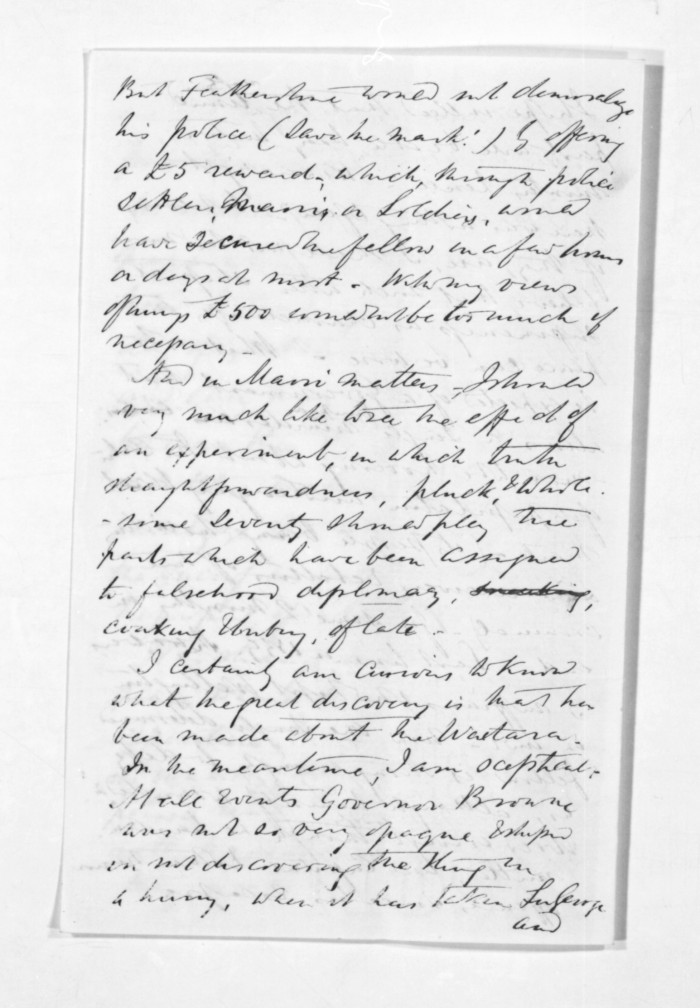 But Featherstone would not demoralize
his police (save the mark!) by offering
a £5 reward, which, through police
settlers, Maoris, or Soldiers, would
have secured the fellow in a few hours
or days at most. With my views
of things £500 would not be too much if
necessary.
And in Maori matters, I should
very much like to see the effect of
an experiment, in which truth
straightforwardness, pluck, & whole-
-some severity should play the
parts which have been assigned
to falsehood diplomacy, sneaking,
coaxing & bribery, of late.
I certainly am curious to know
what the great discovery is that has
been made about the Waitara.
In the meantime, I am sceptical.
At all events Governor Browne
was not so very opaque & stupid
in not discovering the thing in
a hurry, when it has taken Sir George
and